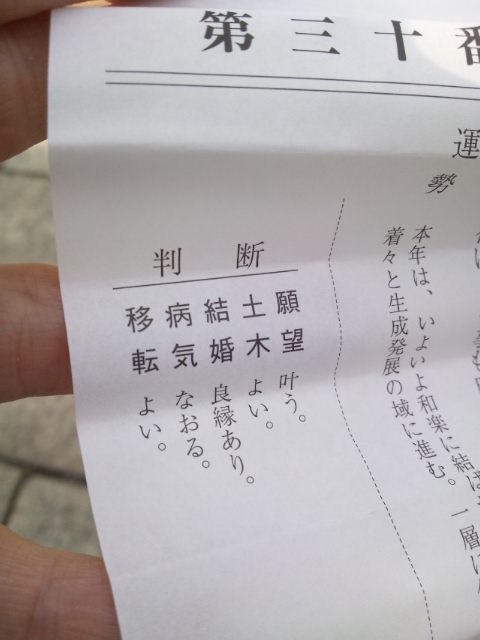 第三十番
運
勢
本年は、いよいよ和楽に結ば
着々と生成発展の域に進む。一層
判断
願望 叶う。
土木 よい。
結婚 良縁あり。
病気 なおる。
移転 よい。